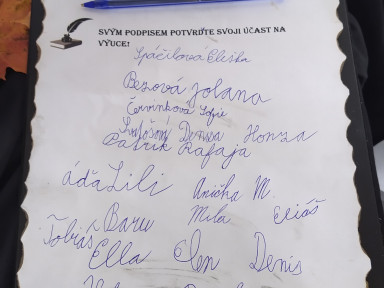 SVÝM PODPISEM POTVRĎTE SVOJI ÚČAST NA
VÝUCE!
Spáčilová Eliška
Bezová Jolana
Červinková Sofie
Denisa Honza
Patrik Rafaja
áďa Lili Anička M
Baru Míla Eliáš
Tobiáš
Ella Elen Denis